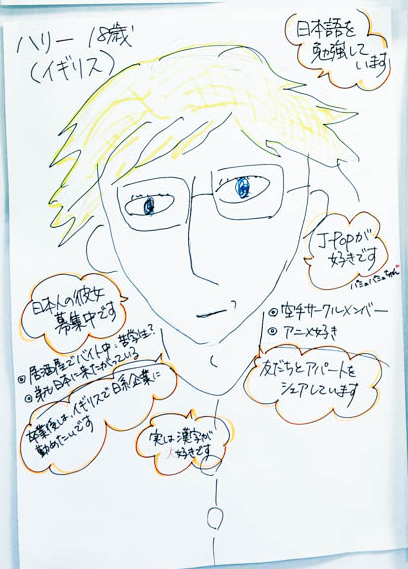 ハリー 18歳
(イギリス)
日本語を
勉強して
います
J-Popが
好きです
パミュパミュちゃん
日本人の彼女
募集中です
◎空手サークルメンバー
◎アニメ好き
◎居酒屋でバイト中・苦学生?
◎弟も日本に来たがっている
友だちとアパートを
シェアしています
卒業後は、イギリスで日系企業に
勤めたいです
実は漢字が
大好きです